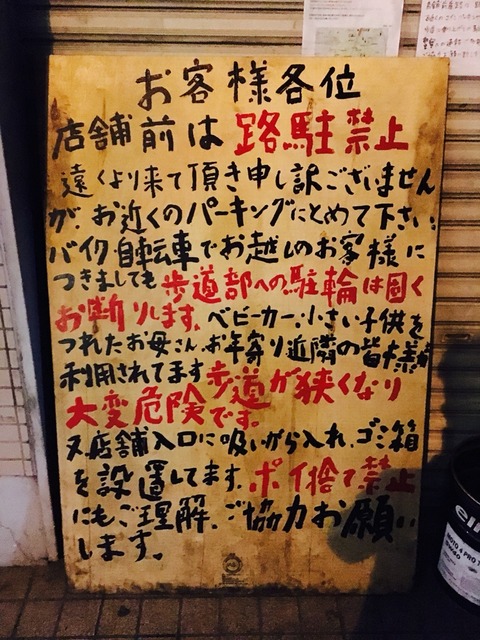 お客様各位
店舗前は路駐禁止
遠くより来て頂き申し訳ございません
が、お近くのパーキングにとめて下さい。
バイク、自転車でお越しのお客様に
つきましても歩道部への駐輪は固く
お断りします。ベビーカー、小さい子供を
つれたお母さん、お年寄り近隣の皆様が
利用されてます歩道が狭くなり
大変危険です。
又、店舗入口に吸いがら入れ、ゴミ箱
を設置してます。ポイ捨て禁止
にもご理解、ご協力お願い
します。
MOTO 4 PRO